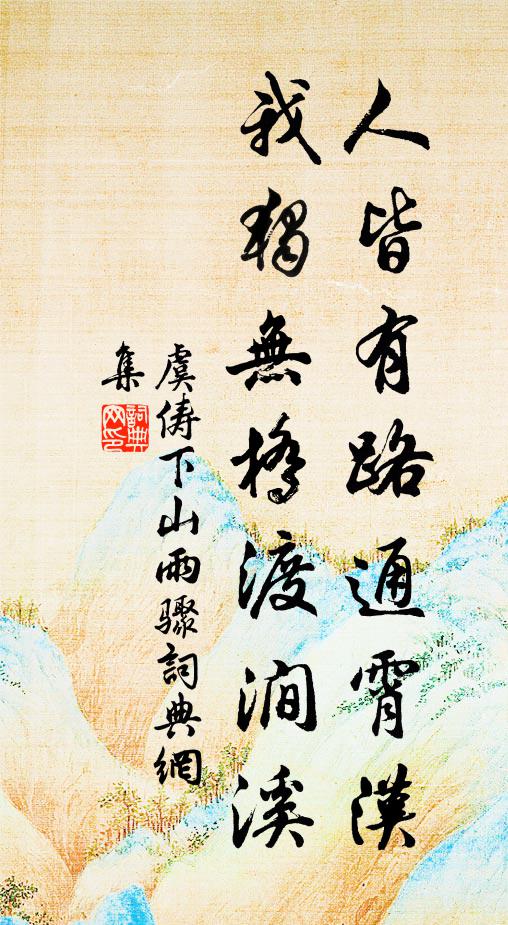 人皆有路通霄漢
我獨無橋渡澗溪
虞儔下山雨驟詞典網
集
詞典网印